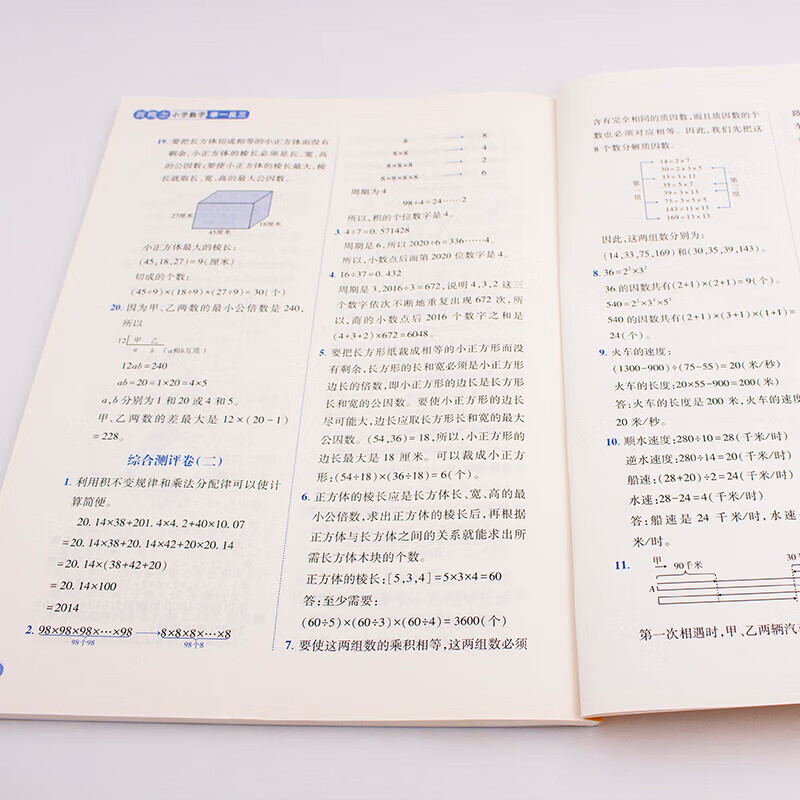 新概念 小学数学 举一反三
19. 要把长方体切成相等的小正方体而没有
剩余,小正方体的棱长必须是长、宽、高
的公因数;要使小正方体的棱长最大,棱
长就取长、宽、高的最大公因数。
27厘米
18厘米
45厘米
小正方体最大的棱长:
(45,18,27)=9(厘米)
切成的个数:
(45÷9)×(18÷9)×(27÷9)=30(个)
20. 因为甲、乙两数的最小公倍数是 240,
所以
12 甲 乙
a b (a和b互质)
12ab=240
ab=20=1×20=4×5
a,b 分别为 1 和 20 或 4 和 5。
甲、乙两数的差最大是 12×(20-1)
=228。
综合测评卷(二)
1. 利用积不变规律和乘法分配律可以使计
算简便。
20.14×38+201.4×4.2+40×10.07
=20.14×38+20.14×42+20×20.14
=20.14×(38+42+20)
=20.14×100
=2014
2. 98×98×98×…×98 8×8×8×…×8
98个98 98个8
8 8
8×8 4
8×8×8 2
8×8×8×8 6
周期为4
98÷4=24……2
所以,积的个位数字是 4。
3. 4÷7=0.571428
周期是 6,所以 2020÷6=336……4。
所以,小数点后面第 2020 位数字是 4。
4. 16÷37=0.432
周期是 3,2016÷3=672,说明 4,3,2 这三
个数字依次不断地重复出现 672 次,所
以,商的小数点后 2016 个数字之和是
(4+3+2)×672=6048。
5. 要把长方形纸裁成相等的小正方形而没
有剩余,长方形的长和宽必须是小正方形
边长的倍数,即小正方形的边长是长方形
长和宽的公因数。要使小正方形的边长
尽可能大,边长应取长方形长和宽的最大
公因数。(54,36)=18,所以,小正方形的
边长最大是 18 厘米。可以裁成小正方
形:(54÷18)×(36÷18)=6(个)。
6. 正方体的棱长应是长方体长、宽、高的最
小公倍数,求出正方体的棱长后,再根据
正方体与长方体之间的关系就能求出所
需长方体木块的个数。
正方体的棱长:[5,3,4]=5×3×4=60
答:至少需要:
(60÷5)×(60÷3)×(60÷4)=3600(个)
7. 要使这两组数的乘积相等,这两组数必须
含有完全相同的质因数,而且质因数的个
数也必须对应相等。因此,我们先把这
8 个数分解质因数。
14=2×7
30=2×3×5
33=3×11
35=5×7
39=3×13
75=3×5×5
143=11×13
169=13×13
第一组
第二组
因此,这两组数分别为:
(14,33,75,169)和(30,35,39,143)。
8. 36=2²×3²
36 的因数共有(2+1)×(2+1)=9(个)。
540=2²×3³×5¹
540 的因数共有(2+1)×(3+1)×(1+1)=
24(个)。
9. 火车的速度:
(1300-900)÷(75-55)=20(米/秒)
火车的长度:20×55-900=200(米)
答:火车的长度是 200 米,火车的速度
20 米/秒。
10. 顺水速度:280÷10=28(千米/时)
逆水速度:280÷14=20(千米/时)
船速:(28+20)÷2=24(千米/时)
水速:28-24=4(千米/时)
答:船速是 24 千米/时,水速
米/时。
11. 甲
90千米
30
A
第一次相遇时,甲、乙两辆汽